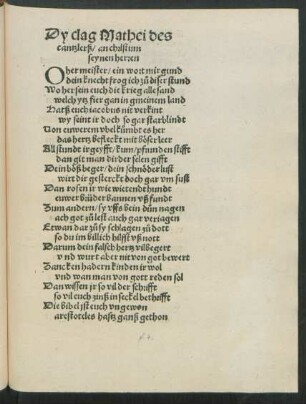 Dy clag Mathei des
cantzlerß / an christum
seynen herren
O her meister / ein wort mir gund
dein knecht frog ich zů diser stund
Wo her sein euch die krieg alle sand
welch ytz fier gan in gmeinem land
Hatß euch iacobus nit verkunt
wy seint ir doch so gar starblindt
Von euwerem vbel kumbt es her
das hertz befleckt mit bößer leer
All stundt ir geyfft / kum / pfrunden stifft
dan git man dir det selen gifft
Dein böß beger / dein schnöder lust
wirt dir gesterckt doch gar vm sust
Dan rosen ir wie wietende hundt
euwer brüder bannen vß fundt
Zum andern / sy vffs bein dün nagen
ach got zů lest auch gar veriagen
Etwan dar zů sy schlagen zů dott
so du im billich hilfst vß nott
Darum dein falsch hertz vil begert
vnd wurt aber nit von got bewert
Zancken hadern kinden ir wol
vnd wan man von gott reden sol
Dan wissen ir so vil der schrifft
so vil euch zinß in seckel betrifft
Die bibel ist euch vngewon
arestoteles hatß ganß gethon